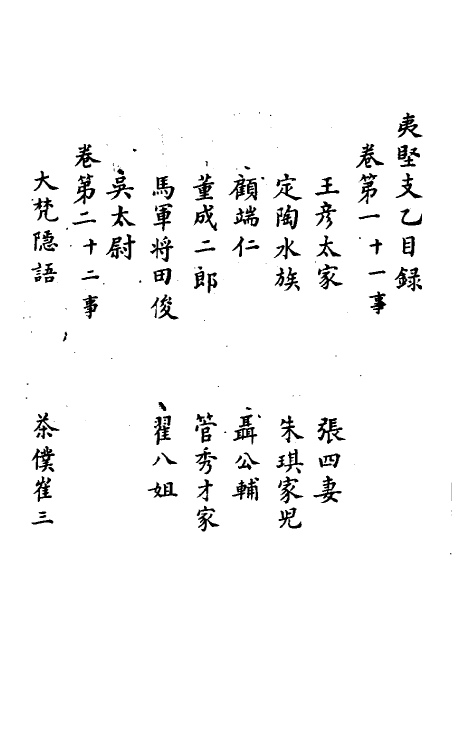 夷堅支乙目録
卷第一十一事
王彦太家　張四妻
定陶水族　朱琪家児
顧端仁　聶公輔
董成二郎　管秀才家
馬軍将田俊　翟八姐
吳太尉
卷第二十二事
大梵隱語　茶僕崔三